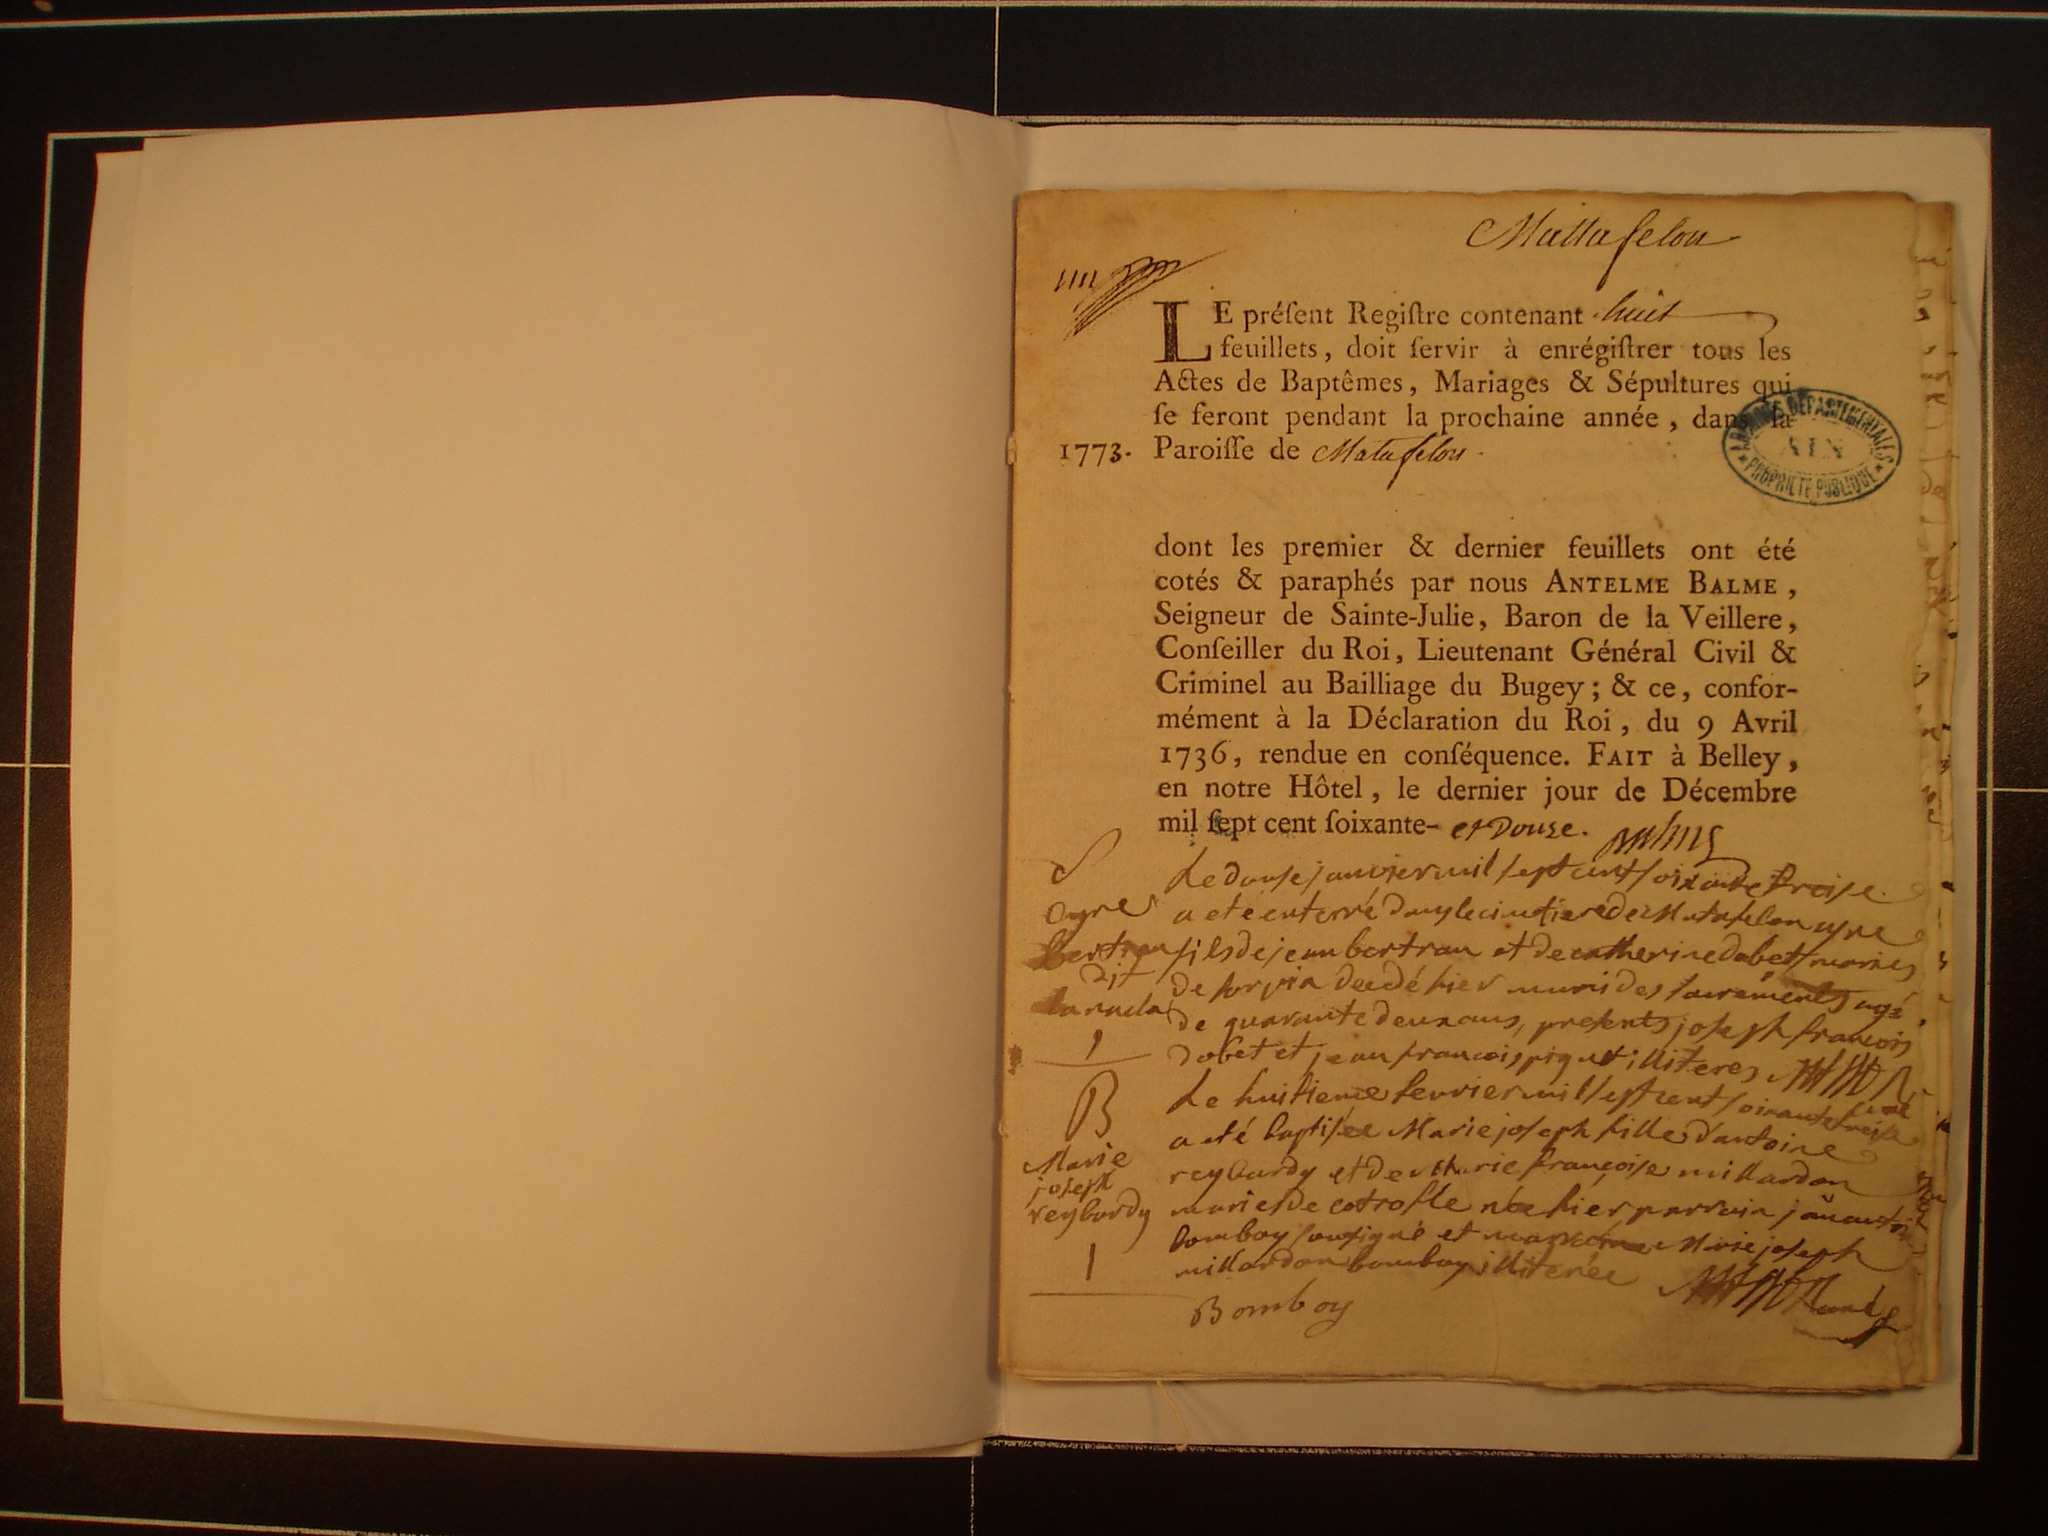 Mattafelon
LE préſent Regiſtre contenant huit
feuillets, doit ſervir à enrégiſtrer tous les
Actes de Baptêmes, Mariages & Sépultures qui
ſe feront pendant la prochaine année, dans la
1773. Paroiſſe de Matafelon.
ARCHIVES DÉPARTEMENTALES
AIN
PROPRIÉTÉ PUBLIQUE
dont les premier & dernier feuillets ont été
cotés & paraphés par nous ANTELME BALME,
Seigneur de Sainte-Julie, Baron de la Veillere,
Conſeiller du Roi, Lieutenant Général Civil &
Criminel au Bailliage du Bugey; & ce, confor-
mément à la Déclaration du Roi, du 9 Avril
1736, rendue en conſéquence. FAIT à Belley,
en notre Hôtel, le dernier jour de Décembre
mil ſept cent ſoixante- et Douze.
S
bertran
dit
1
Le douse janvier mil sept cent soixante treise
a eté enterré dans le cimetiere de Matafelon
fils de jean bertran et de catherine dobet maries
de hier muni des sacrements agé
de quarante deux ans, presents joseph françois
dobet et jean francois piquet illiteres
B
Marie
joseph
reybardy
1
Le huitieme fevrier mil sept cent soixante treise
a eté baptisée Marie joseph fille d'antoine
reybardy et de Marie françoise millardon
maries de née hier parrain
bomboy soussigné et marraine Marie joseph
millardon bomboy illiterée
Bomboy
curé